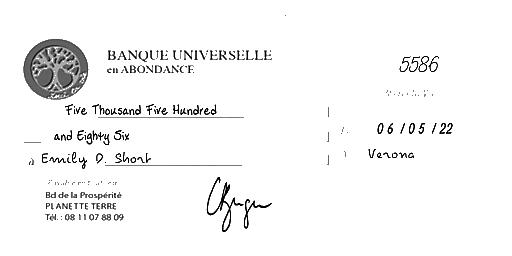 BANQUE UNIVERSELLE
en ABONDANCE
5586
Five Thousand Five Hundred
and Eighty Six
06/05/22
à Emily D. Short
Verona
Bd de la Prospérité
PLANETTE TERRE
Tél. : 08 11 07 88 09